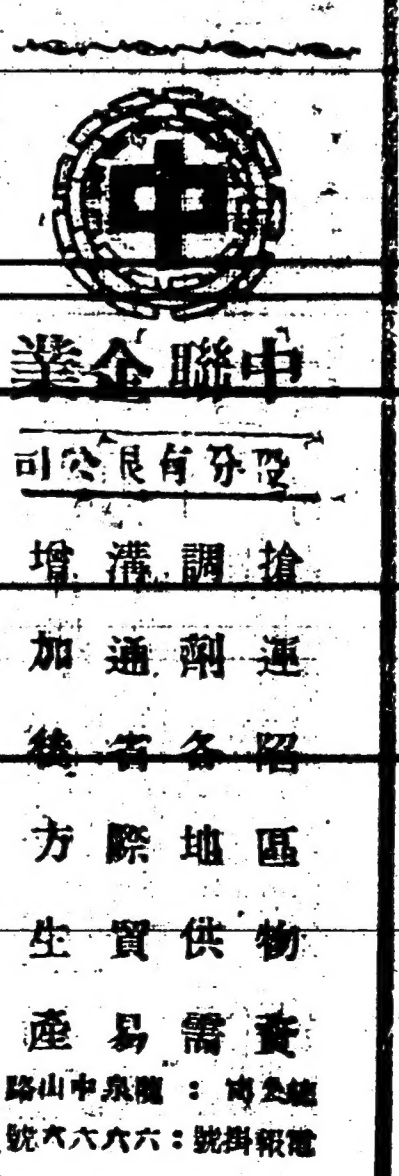 中
中聯企業
股份有限公司
搶運陷區物資
調劑各地供需
溝通省際貿易
增加後方生產
總公司：龍泉中山路
電報掛號：六六六六號